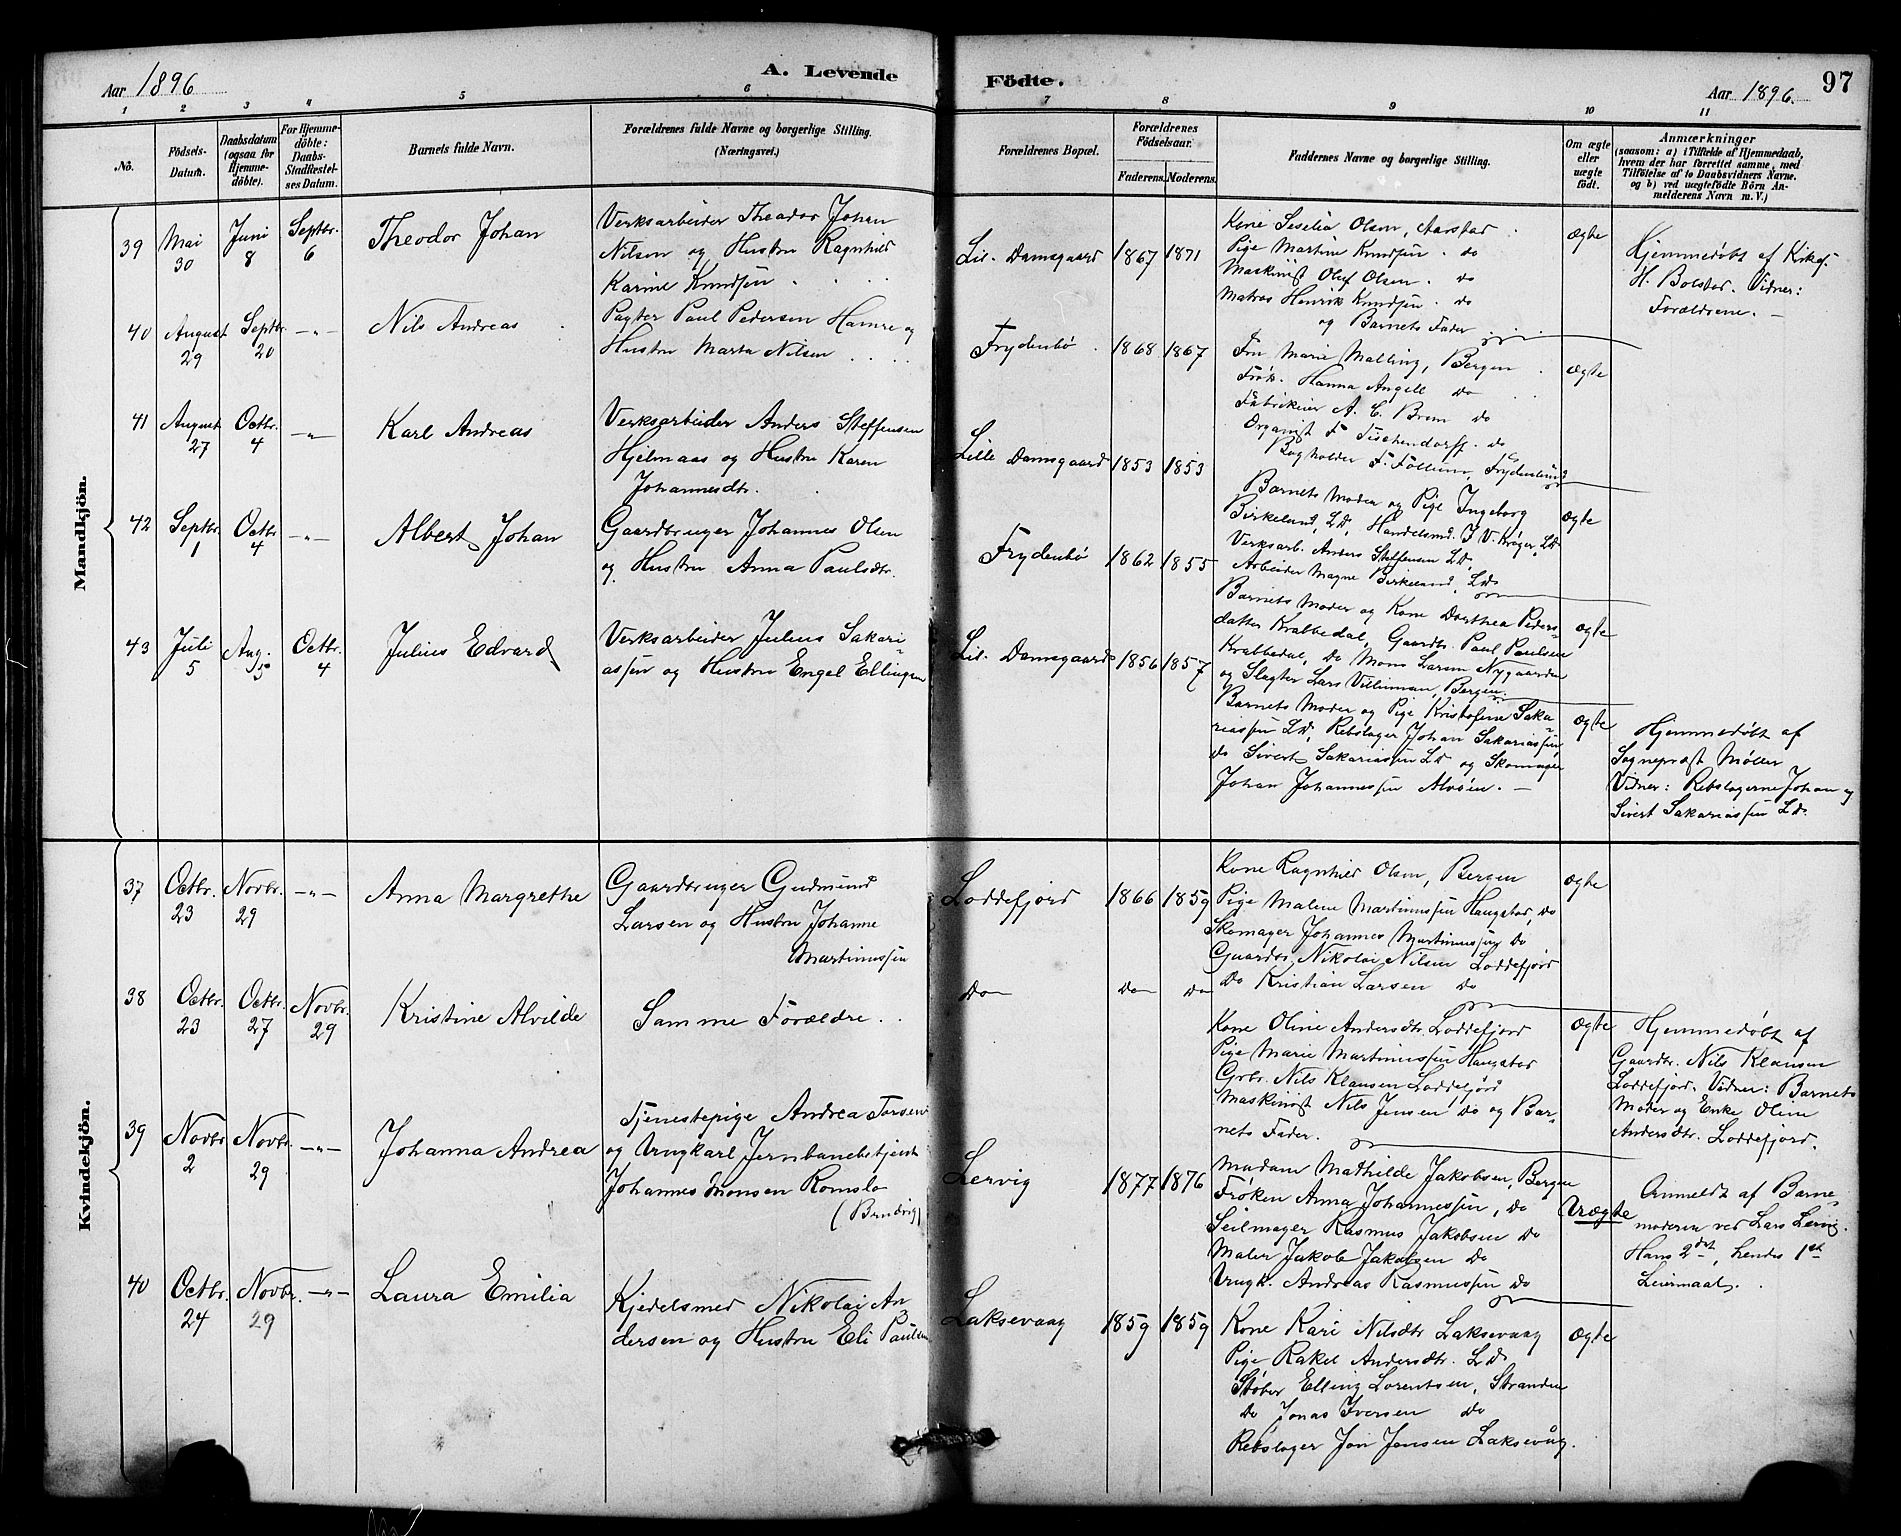 Aar 1896
A. Levende
Födte.
Aar 1896.
97
1 2 3 4 5 6 7 8 9 10 11
No.
Födsels-Datum.
Daabsdatum (ogsaa for Hjemme-döbte).
For Hjemme-döbte: Daabs-Stadfæstel-ses Datum.
Barnets fulde Navn.
Forældrenes fulde Navne og borgerlige Stilling.
(Næringsvei.)
Forældrenes Bopæl.
Forældrenes Födselsaar.
Faderens. Moderens.
Faddernes Navne og borgerlige Stilling.
Om ægte eller uægte födt.
Anmærkninger
(saasom: a) i Tilfælde af Hjemmedaab, hvem der har forrettet samme, med Tilföielse af to Daabsvidners Navne, og b) ved uægtefödte Börn Anmelderens Navn m. V.)
Mandkjön.
39 Mai 30 Juni 8 Septbr. 6
Theodor Johan
Verksarbeider Theodor Johan
Nilsen og Hustru Ragnhild
Karine Knudsen
Lil. Damsgaard 1867 1871
Kone Seselia Olsen, Aarstad
Pige Martine Knudsen do
Maskinist Oluf Olsen do
Matros Henrik Knudsen do
og Barnets Fader
Ægte
Hjemmedøbt af Kirkes.
H. Bolstad. Vidner:
Forældrene. —
40 August 29 Septbr. 20 -"-
Nils Andreas
Pagter Paul Pedersen Hamre og
Hustru Marta Nilsen
Frydenbø 1868 1867
Fru Marie Malling, Bergen
Frøk. Hanna Angell do
Fabrikeier A. C. Brem do
Organist F. Tischendorff do
Bogholder F. Follum, Frydenlund
Ægte
41 August 27 Octbr. 4 -"-
Karl Andreas
Verksarbeider Anders Steffensen
Hjelmaas og Hustru Karen
Johannesdtr.
Lille Damsgaard 1853 1853
Barnets Moder og Pige Ingeborg
Birkeland, Ld, Handelsmd. J. V. Krøger, Ld
Verksarb. Anders Steffensen Ld,
Arbeider Magne Birkeland, Ld
Ægte
42 Septbr. 1 Octbr. 4 -"-
Albert Johan
Gaardbruger Johannes Olsen
og Hustru Anna Paulsdtr.
Frydenbø 1862 1855
Barnets Moder og Kone Dorthea Peders-
datter Krabbedal, Gaardbr. Paul Paulsen
Krabbedal, Do Mons Larsen Nygaarden
og Slagter Lars Villuman, Bergen.
Ægte
43 Juli 5 Aug. Octbr. 4
Julius Edvard
Verksarbeider Julius Sakari-
assen og Hustru Engel Ellingsen
Lil. Damsgaard 1856 1857
Barnets Moder og Pige Kristofine Saka-
riassen Ld, Rebslager Johan Sakariassen
do Sivert Sakariassen Ld og Skomager
Johan Johannessen Alvøen. —
Ægte
Hjemmedøbt af
Sognepræst Møller
Vidner: Rebslagerne Johan og
Sivert Sakariassen Ld.
Kvindekjön.
37 Octbr. 23 Novbr. 29 -"-
Anna Margrethe
Gaardbruger Gudmund
Larsen og Hustru Johanne
Martinussen
Loddefjord 1866 1859
Kone Ragnhild Olsen, Bergen
Pige Malene Martinussen Haugstad, do
Skomager Johannes Martinussen Do
Gaardbr. Nikolai Nilsen Loddefjord
Do Kristian Larsen do
Ægte
38 Octbr. 23 Octbr. 27 Novbr. 29
Kristine Alvilde
Samme Forældre
Do Do Do
Kone Oline Andersdtr. Loddefjord
Pige Marie Martinussen Haugstad
Grbr. Nils Klausen Loddefjord
Maskinist Nils Jensen Do og Bar-
nets Fader.
Ægte
Hjemmedøbt af
Gaardbr. Nils Klausen
Loddefjord. Vidner: Barnets
Moder og Enke Oline
Andersdtr. Loddefjord.
39 Novbr 2 Novbr. 29 -"-
Johanna Andrea
Tjenestepige Andrea Larsen
og Ungkarl Jernbanebetjent
Johannes Monsen Romslo
Lervig 1877 1876
Madam Mathilde Jakobsen, Bergen
Frøken Anna Johannessen, do
Seilmager Rasmus Jakobsen Do
Maler Jakob Jakobsen Do
Ungk. Andreas Rasmussen Do
Uægte
Anmeldt af Barne-
moderen ved Lars Lervig.
Hans 2det, hendes 1ste
Leiermaal.
40 Octbr. 24 Novbr. 29 -"-
Laura Emilia
Kjedelsmed Nikolai An
dersen og Hustru Eli Paulsen
Laksevaag 1859 1859
Kone Kari Nilsdtr Laksevaag
Pige Rakel Andersdtr. Ld
Støber Elling Lorentsen, Stranden
Do Jonas Iversen do
Rebslager Jon Jensen Laksevåg.
Ægte